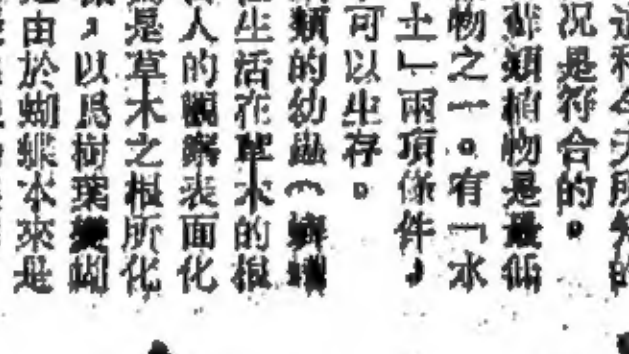 這和今天所知的
况是符合的。
類植物是最低
物之一。有「水
土」兩項條件，
可以生存。
類的幼蟲（蠐螬
生活在草木的根
人的觀察表面化
是草木之根所化
，以爲樹葉變蝴
由於蝴蝶本來是